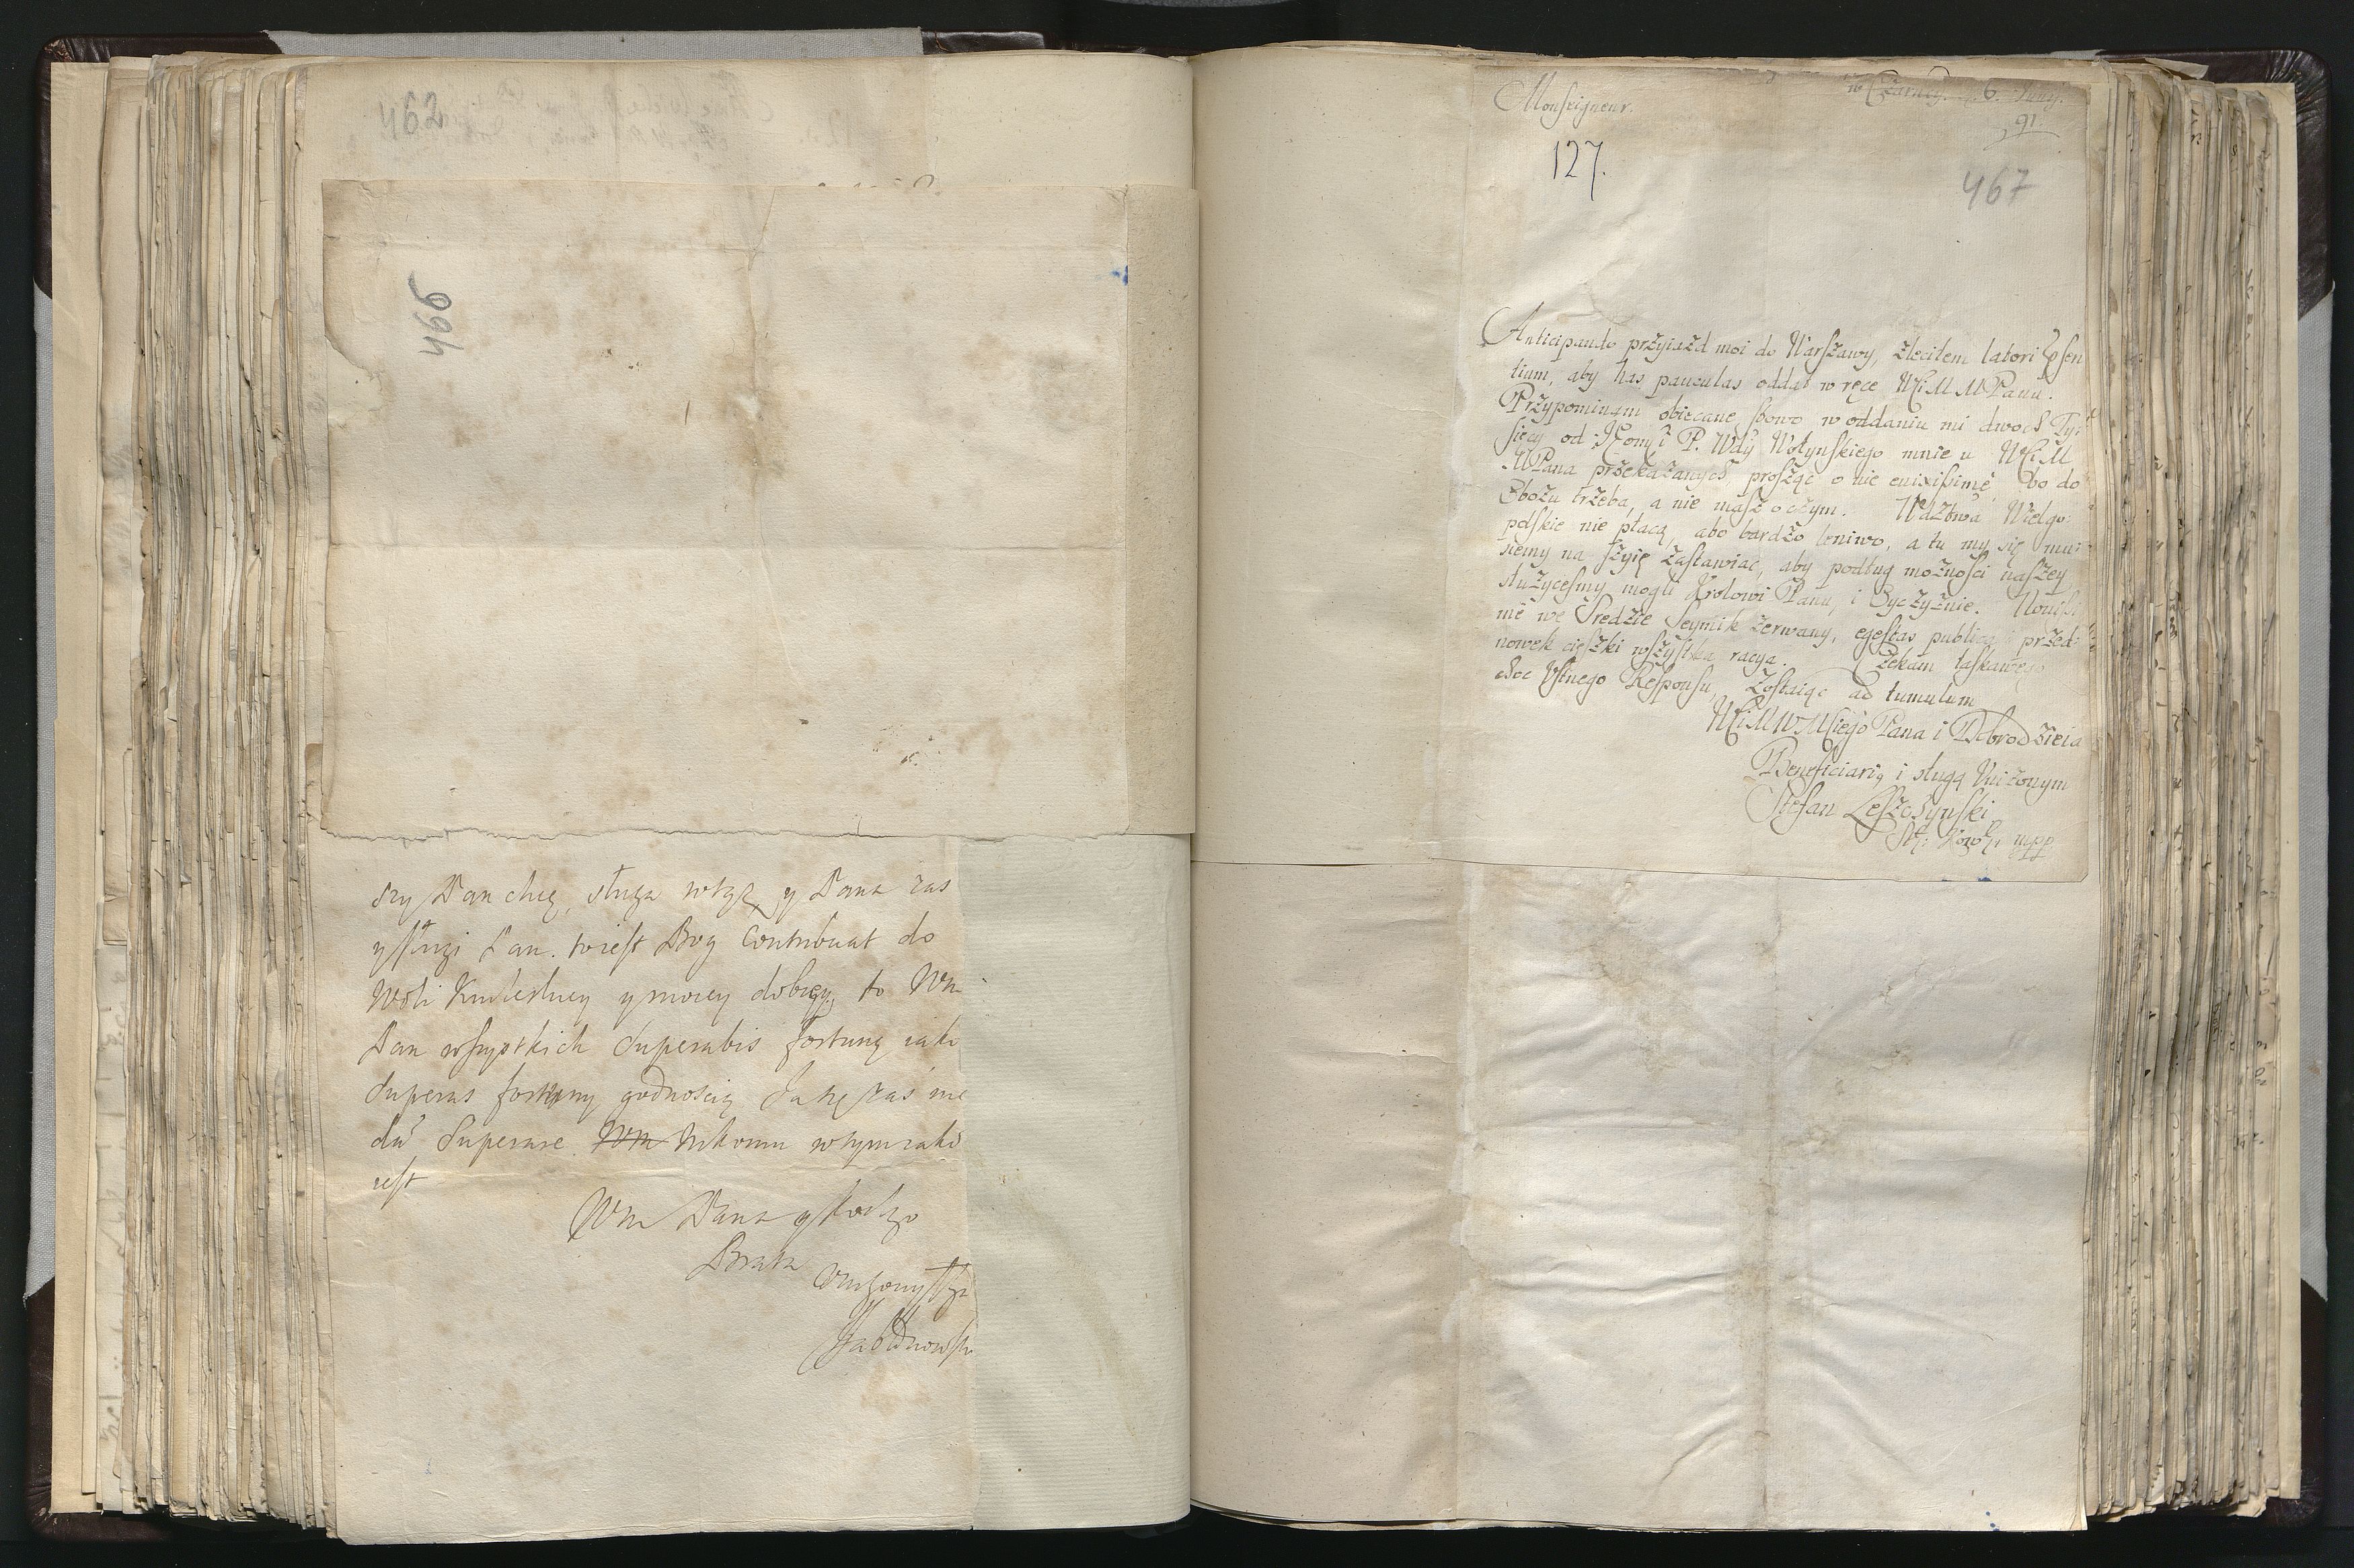 462
466
szy Pan chcę, sługa wtąż y Pana zas
y sługi Pan. wiest Bog Contribuat do
Woli y mocy dobrey, to Wm
Pan wszystkich Superabis fortuną iako
Superas fortuny godnoscią zas nie
da Superare Nikomu wtym iako
iest
Wm Pana y
Brata
Jabłonowski
Monseigneur.
w Czarney 6. Junij.
91
127.
467
Anticipando przyiazd moi do Warszawy, zleciłem latori psen
tium, aby has pauculas oddał w ręce WMM Panu.
Przypominam obiecane słowo w oddaniu mi dwoch Ty:
sięcy od P. Wdy Wołynskiego mnie u WMM
MPana przekazanych, prosząc o nie enixissime, bo do
Obozu trzeba, a nie masz o czym. Wdztwa Wielgo:
polskie nie płacą, abo bardzo leniwo, a tu my się mu:
siemy na szyię zastawiac, aby podług moznosci naszey
słuzycesmy mogli Krolowi Panu, i Oyczyznie. Nouissi
me we Sredzie Seymik zerwany, egestas publica, przed:
nowek cięszki wszystka racya. Czekam łaskawego
choc Vstnego Responsu, Zostaiąc ad tumulum
WMMWMsciego Pana i Dobrodzieia
Beneficiarią i sługą Vnizonym
Stefan Leszczynski
mpp